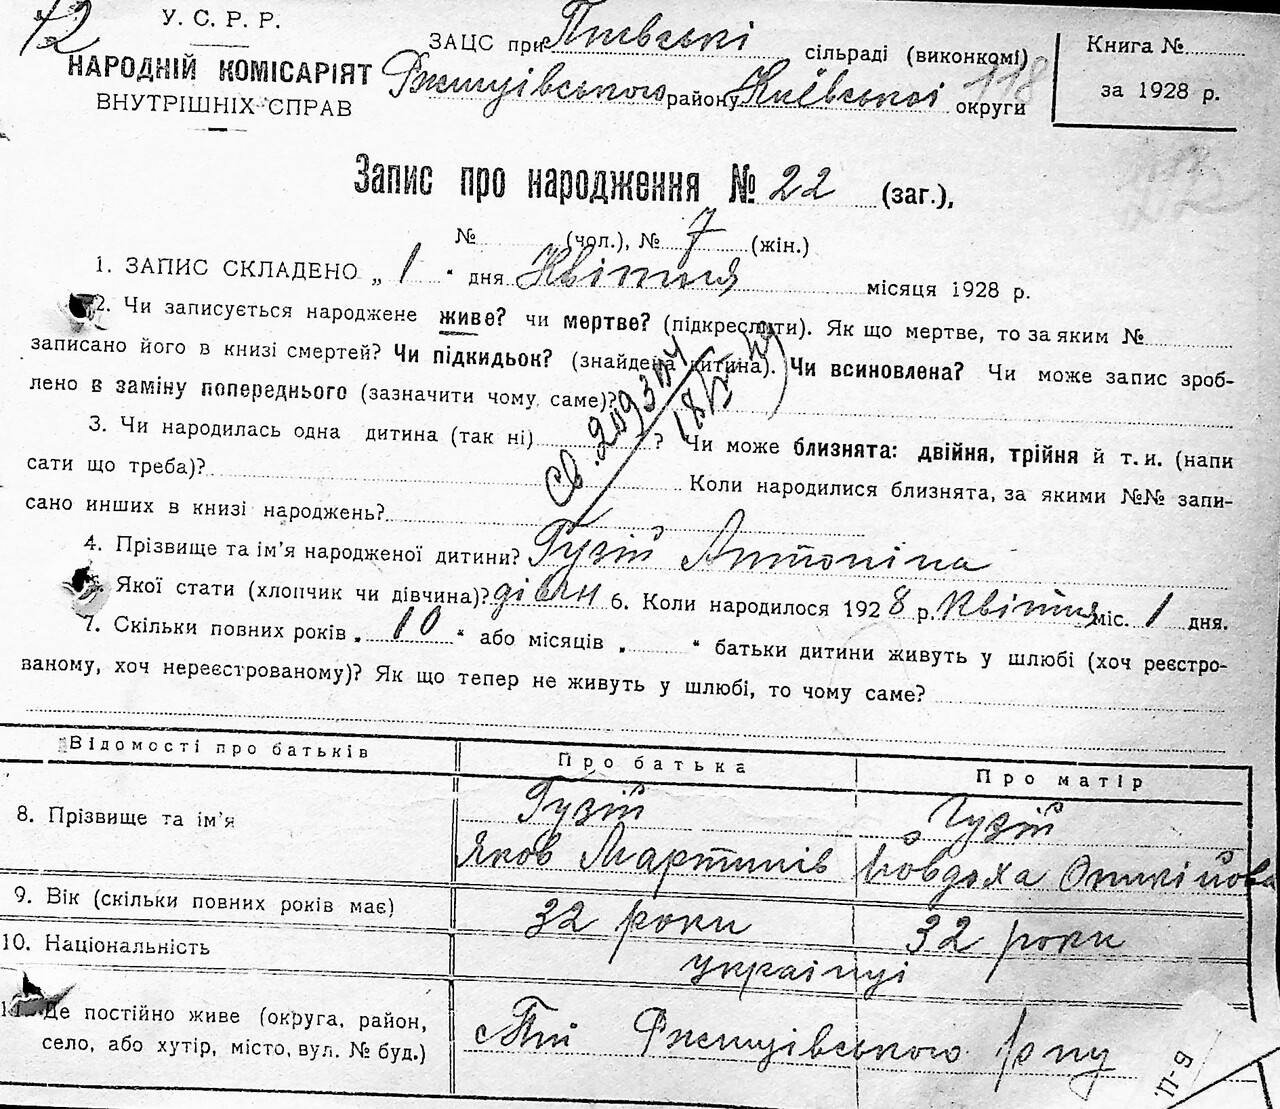 72
У. С. Р. Р.
НАРОДНІЙ КОМІСАРІЯТ
ВНУТРІШНІХ СПРАВ
ЗАЦС при Пиєвські сільраді (виконкомі)
Ржищівського району Київської округи
118
Книга №
за 1928 р.
Запис про народження № 22 (заг.),
№ (чол.), № 7 (жін.)
1. ЗАПИС СКЛАДЕНО „ 1 " дня Квітня місяця 1928 р.
2. Чи записується народжене живе? чи мертве? (підкреслити). Як що мертве, то за яким №
записано його в книзі смертей? Чи підкидьок? (знайдена дитина). Чи всиновлена? Чи може запис зроб-
лено в заміну попереднього (зазначити чому саме)?
3. Чи народилась одна дитина (так ні) ? Чи може близнята: двійня, трійня й т. и. (напи
сати що треба)? Коли народилися близнята, за якими №№ запи-
сано инших в книзі народжень?
4. Прізвище та ім'я народженої дитини? Гузій Антоніна
5. Якої стати (хлопчик чи дівчина)? дівчи 6. Коли народилося 1928 р. Квітня міс. 1 дня.
7. Скільки повних років „ 10 " або місяців „ " батьки дитини живуть у шлюбі (хоч реєстро-
ваному, хоч нереєстрованому)? Як що тепер не живуть у шлюбі, то чому саме?
Відомості про батьків Про батька Про матір
8. Прізвище та ім'я Гузій Гузій
Яков Мартинів Йовдоха
9. Вік (скільки повних років має) 32 роки 32 роки
10. Національність українці
11. Де постійно живе (округа, район,
село, або хутір, місто, вул. № буд.)
с Пії Ржищівського р/ну